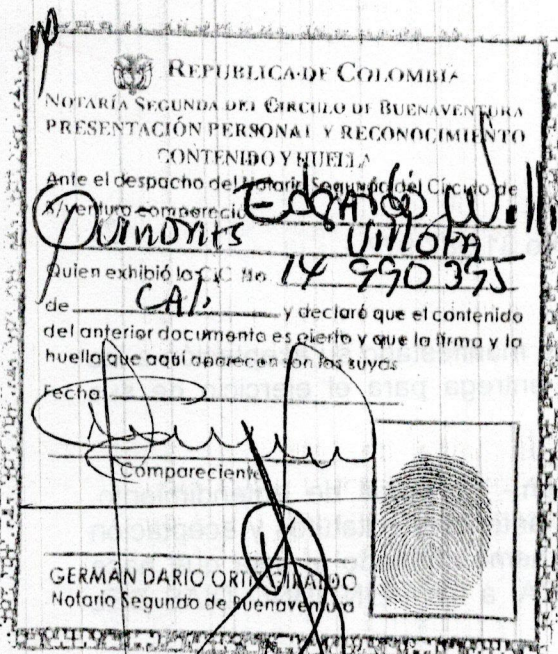 REPUBLICA DE COLOMBIA
NOTARÍA SEGUNDA DEL CIRCULO DE BUENAVENTURA
PRESENTACIÓN PERSONAL Y RECONOCIMIENTO
CONTENIDO Y HUELLA
Ante el despacho del Notario Segundo del Circulo de
B/ventura compareció Edgardo W.
Quiñones
Quien exhibió la C.C. No 14 990 395
de CALI y declaró que el contenido
del anterior documento es cierto y que la firma y la
huella que aquí aparecen son las suyas
Fecha
Compareciente
GERMAN DARIO ORTIZ GIRALDO
Notario Segundo de Buenaventura